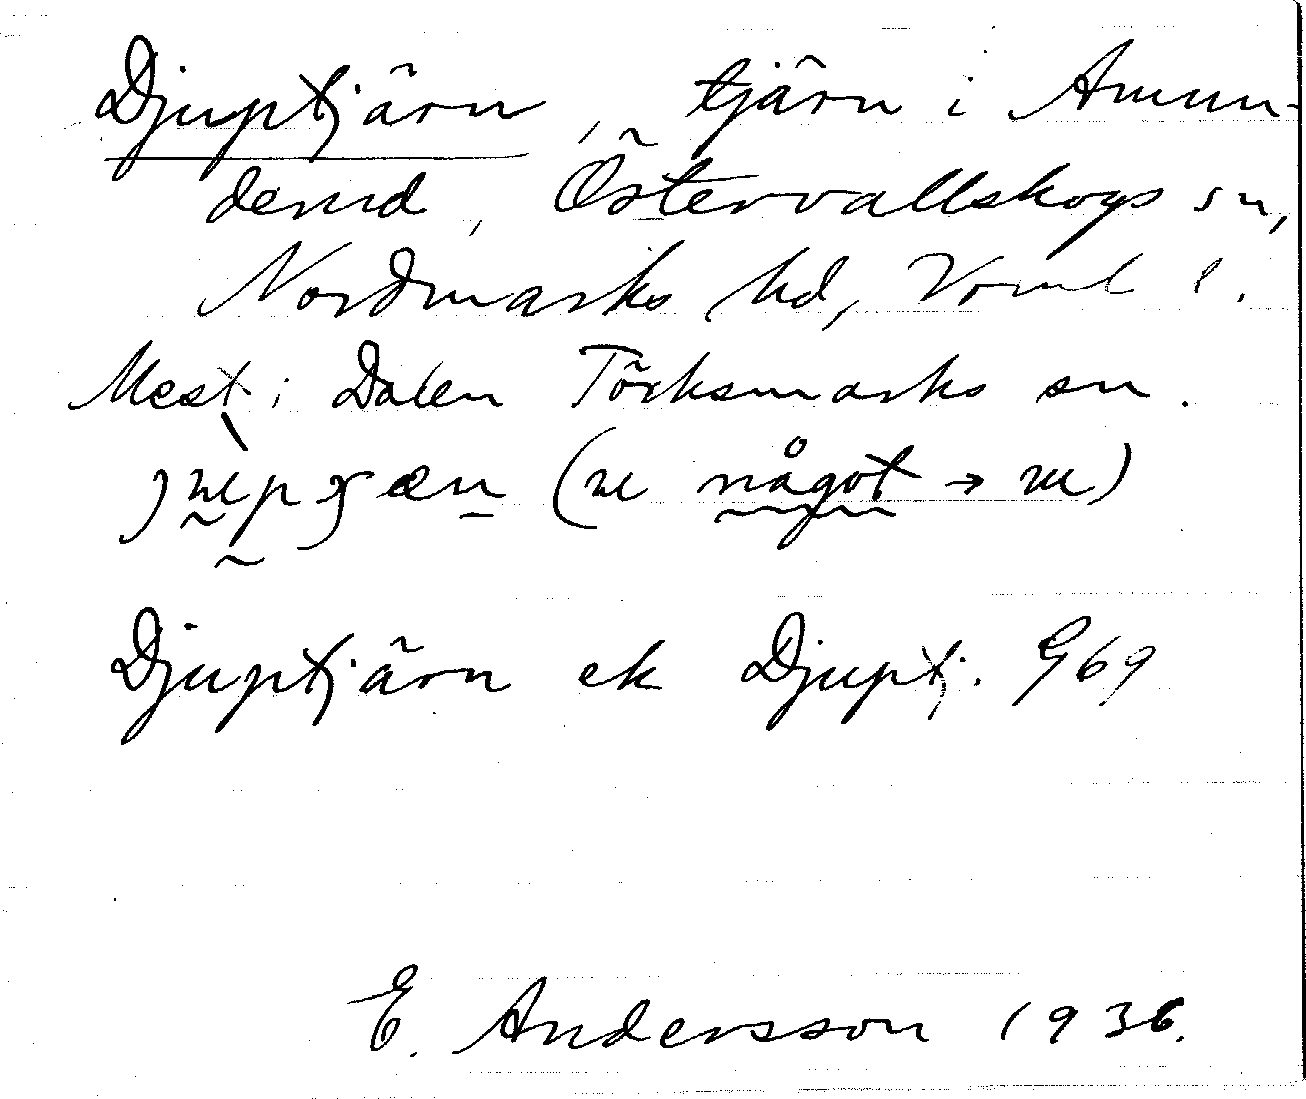 Djuptjärn, tjärn i Amun-
derud, Östervallskogs sn,
Nordmarks hd, Värml l.
Mest i Dalen Törksmarks sn.
(u något → ɯ)
Djuptjärn ek Djuptj. G69
E. Andersson 1936.